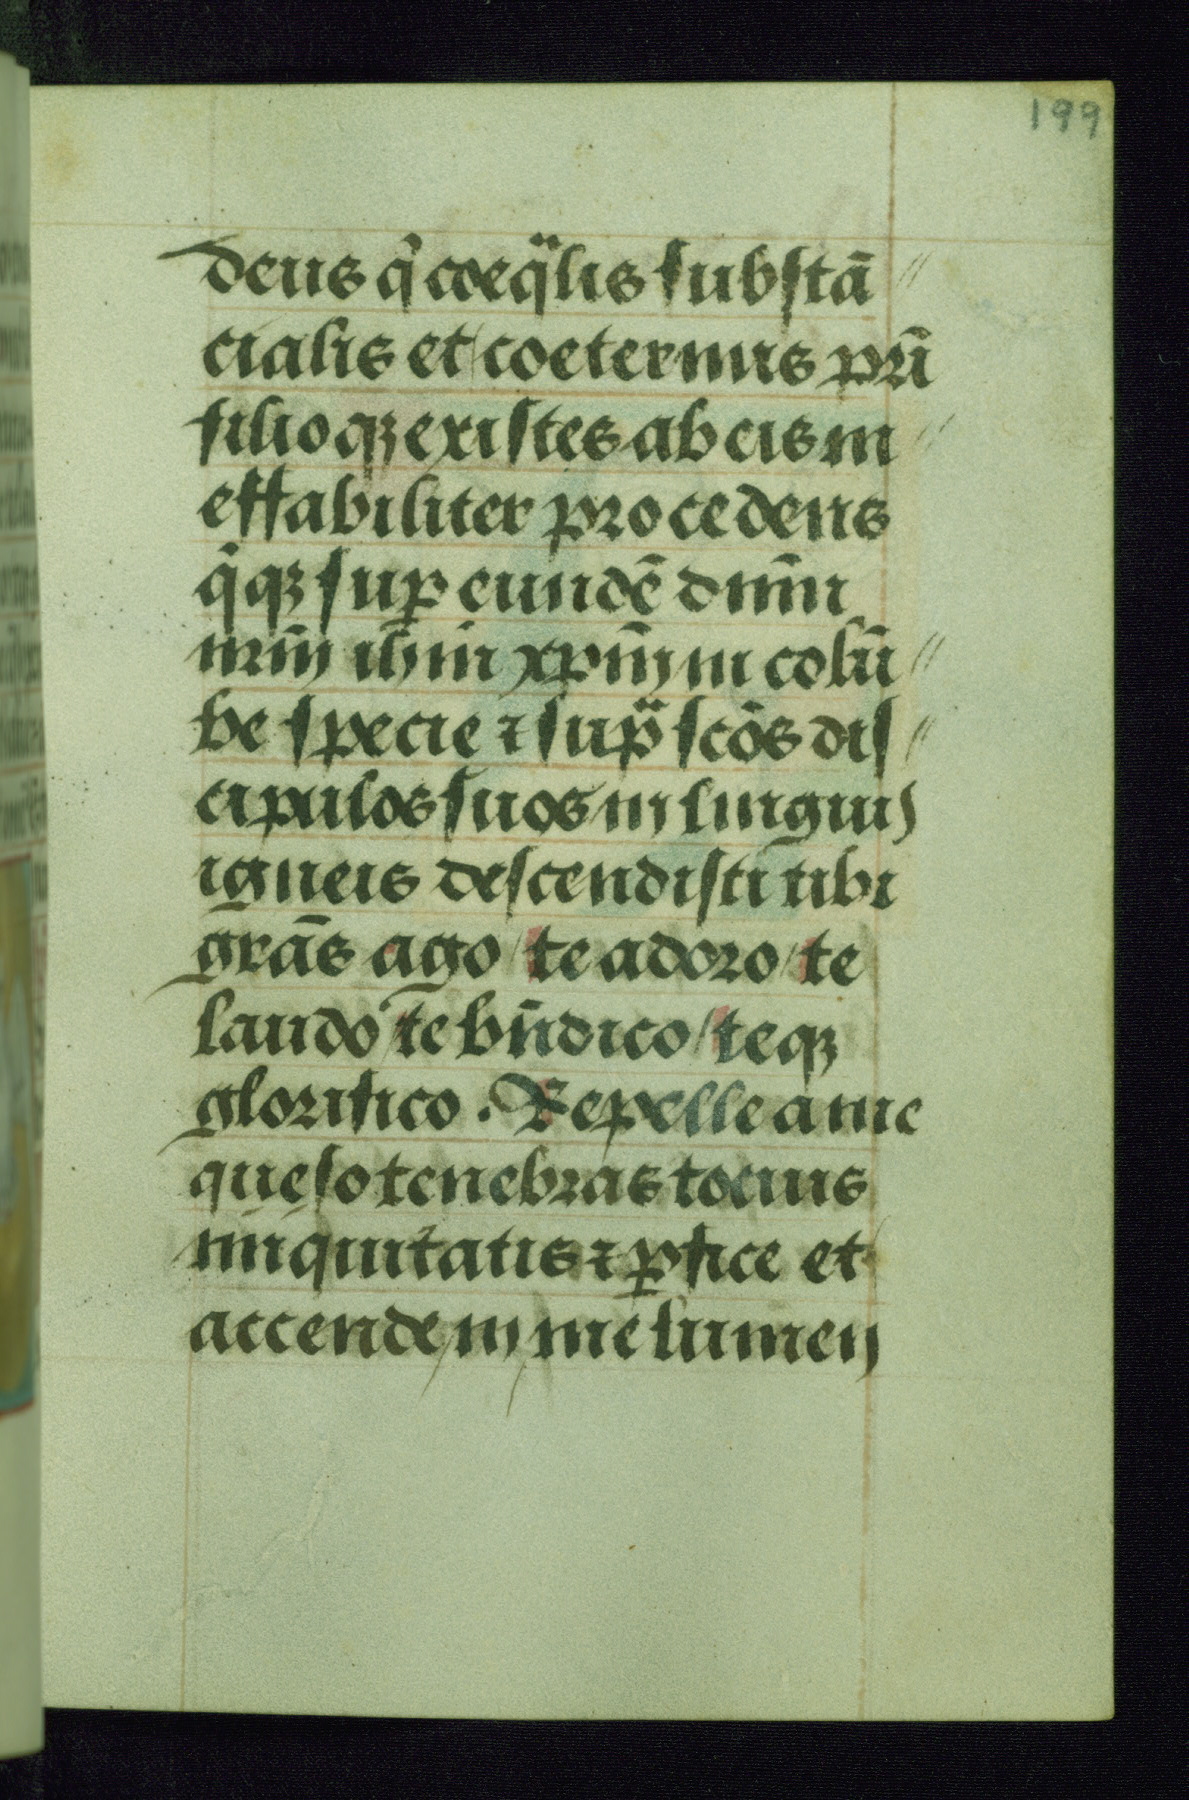 199
deus qͥ coeqᷓlis substā//
cialis et coeternus pr̄i
filioqꝫ existēs ab eis in//
effabiliter procedens
qͥqꝫ suꝑ eundē dn̄m
nr̄m ih̄m xp̄m in colū//
be specie ⁊ supᷓ sc̄os dis//
cipulos suos in linguis
igneis descendisti tibi
gr̄as ago / te adoro / te
laudo / te bn̄dico / teqꝫ
glorifico . Repelle a me
quęso tenebras tocius
iniquitatis ⁊ ꝑfice et
accende in me lumen